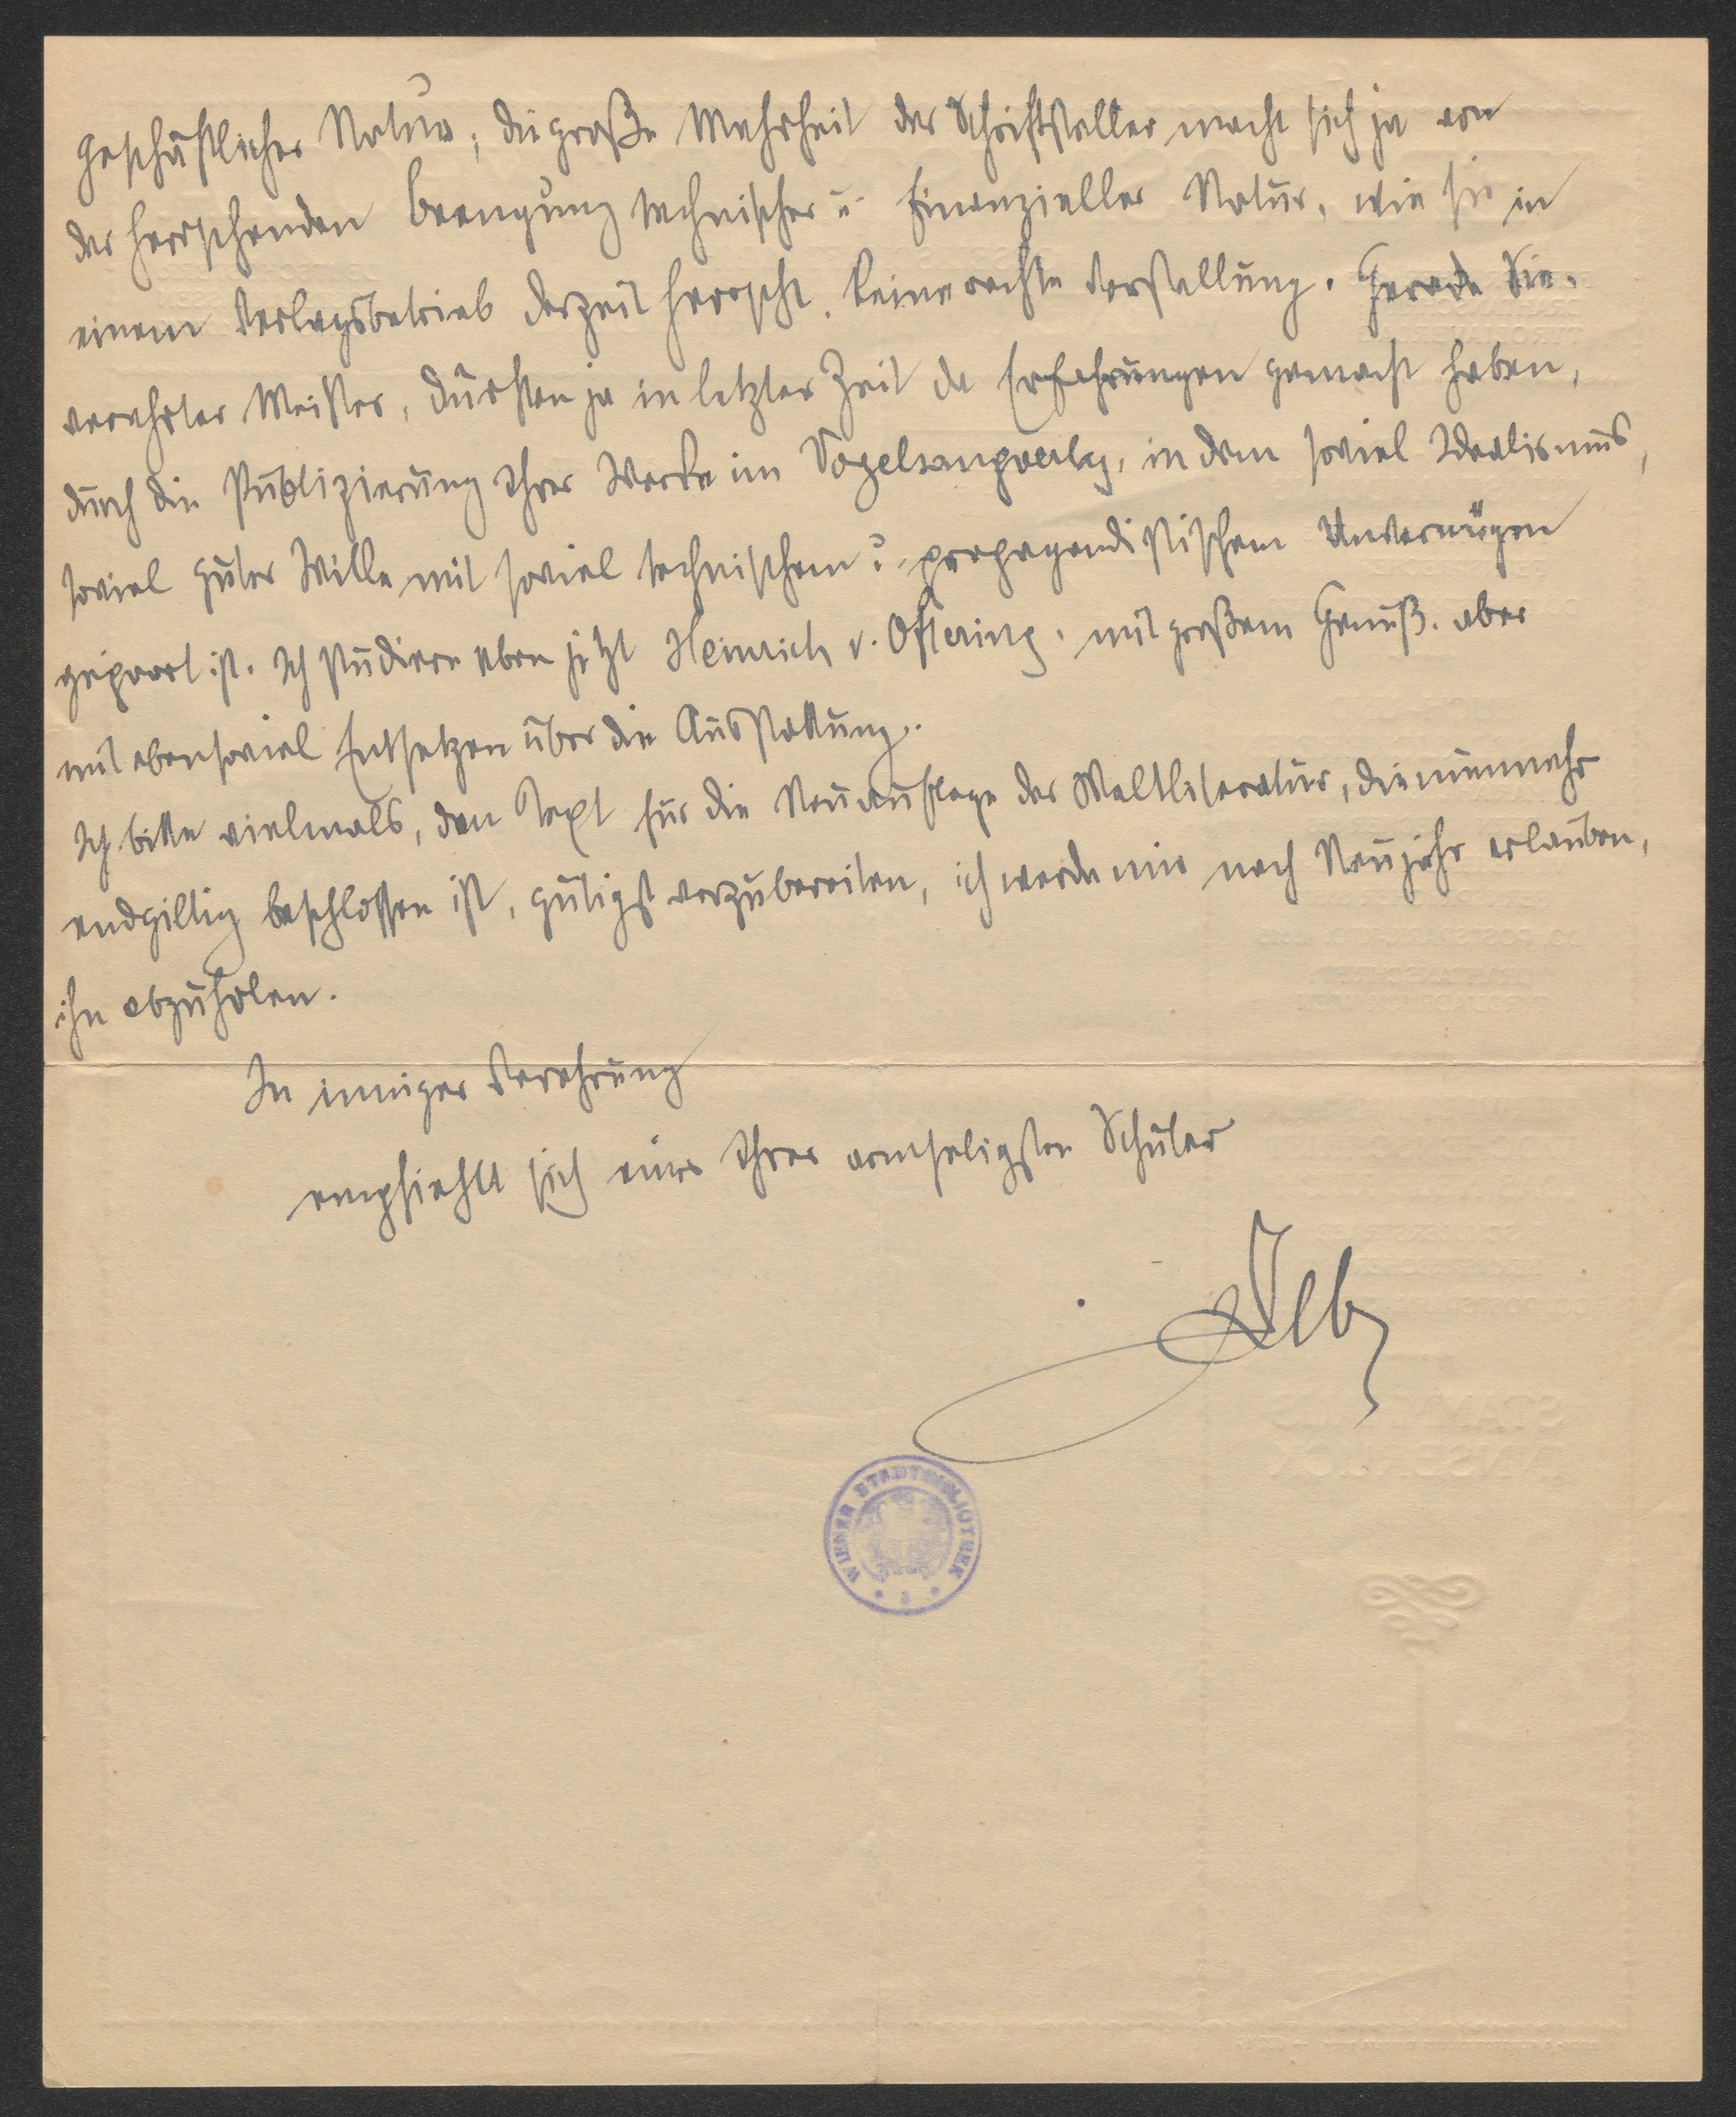 geschäftlicher Natur; die große Mehrheit der Schriftsteller macht sich ja von
der herrschenden Beengung technischer u. finanzieller Natur, wie sie in
einem Verlagsbetrieb derzeit herrscht, keine rechte Vorstellung. Gerade Sie,
verehrter Meister, dürften ja in letzter Zeit da Erfahrungen gemacht haben,
durch die Publizierung Ihrer Werke im Vogelsangverlag, in dem soviel Idealismus,
soviel guter Wille mit soviel technischem u. propagandistischem Unvermögen
gepaart ist. Ich studiere eben jetzt Heinrich v. Oftering. mit großem Genuß, aber
mit ebensoviel Entsetzen über die Ausstattung.
Ich bitte vielmals, den Text für die Neuauflage der Weltliteratur, die nunmehr
endgiltig beschlossen ist, gütigst vorzubereiten, ich werde mir nach Neujahr erlauben,
ihn abzuholen.
In inniger Verehrung
empfiehlt sich einer Ihrer armseligsten Schüler
WIENER STADTBIBLIOTHEK